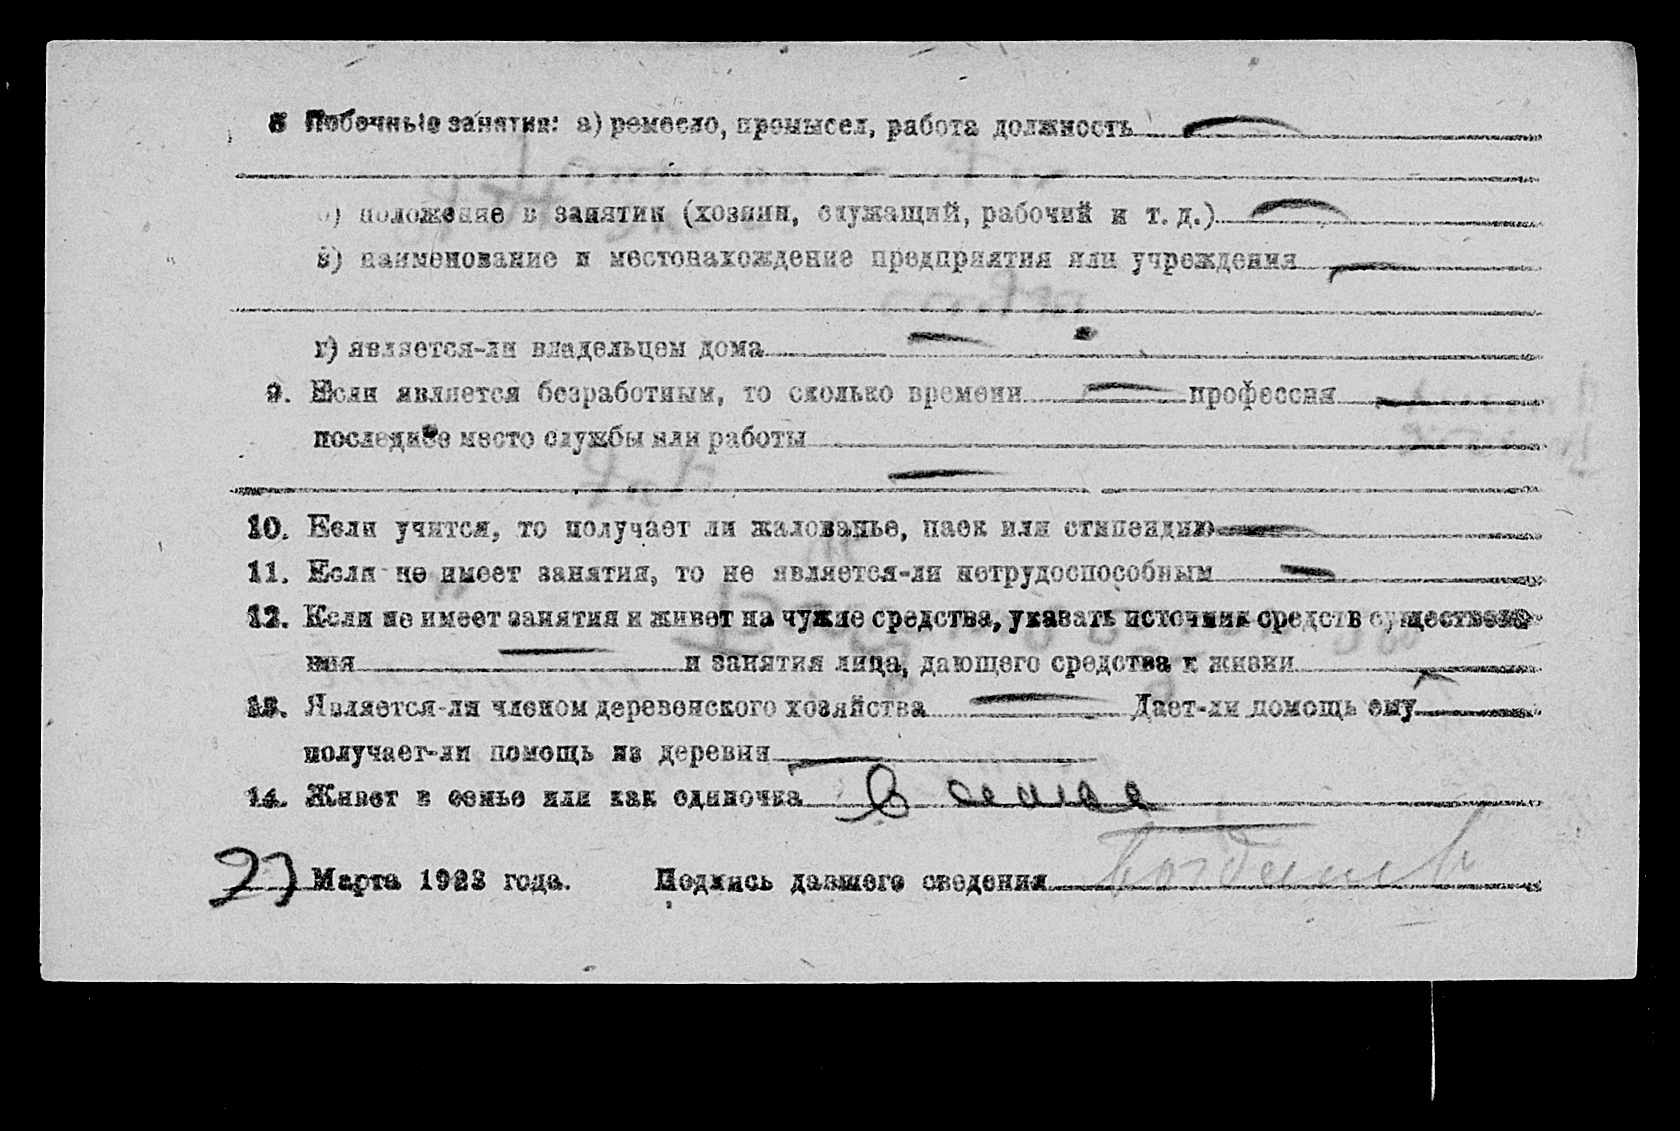 8 Побочные занятия: а) ремесло, промысел, работа должность —
б) положение в занятии (хозяин, служащий, рабочий и т. д.) —
в) наименование и местонахождение предприятия или учреждения —
г) является-ли владельцем дома —
9. Если является безработным, то сколько времени — профессия —
последнее место службы или работы
—
10. Если учится, то получает ли жалованье, паек или стипендию —
11. Если не имеет занятия, то не является-ли нетрудоспособным —
12. Если не имеет занятия и живет на чужие средства, указать источник средств существова-
ния — и занятия лица, дающего средства к жизни —
13. Является-ли членом деревенского хозяйства — Дает-ли помощь ему —
получает-ли помощь из деревни —
14. Живет в семье или как одиночка В семье
27 Марта 1923 года. Подпись давшего сведения